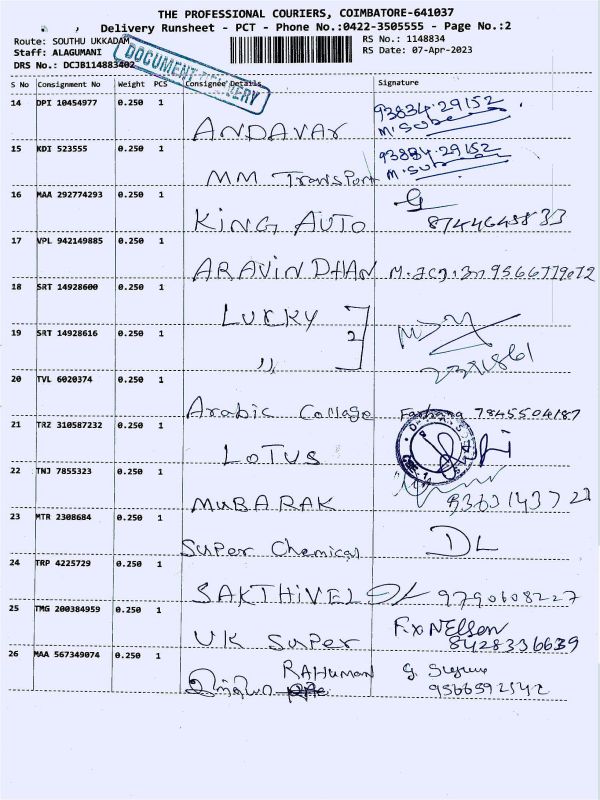 THE PROFESSIONAL COURIERS, COIMBATORE-641037
Delivery Runsheet - PCT - Phone No.:0422-3505555 - Page No.:2
Route: SOUTHU UKKADAM
RS No.: 1148834
Staff: ALAGUMANI
RS Date: 07-Apr-2023
DRS No.: DCJB114883402
DOCUMENT DELIVERY
S No Consignment No Weight PCS Consignee Details Signature
14 DPI 10454977 0.250 1 ANDAVAR 93834 29152
15 KDI 523555 0.250 1 MM Transport 93834 29152
16 MAA 292774293 0.250 1 KING AUTO 8744648833
17 VPL 942149885 0.250 1 ARAVINDHAN 9566779072
18 SRT 14928600 0.250 1 LUCKY 2
19 SRT 14928616 0.250 1 ,,
20 TVL 6020374 0.250 1 Arabic Collage Farhana 7845504187
21 TRZ 310587232 0.250 1 LOTUS
22 TNJ 7855323 0.250 1 MUBARAK
23 MTR 2308684 0.250 1 Super Chemical DL
24 TRP 4225729 0.250 1 SAKTHIVEL DL 9790608227
25 TMG 200384959 0.250 1 UK Super F.x NELSON 8428336639
26 MAA 567349074 0.250 1 RAHUMAN 9566592542